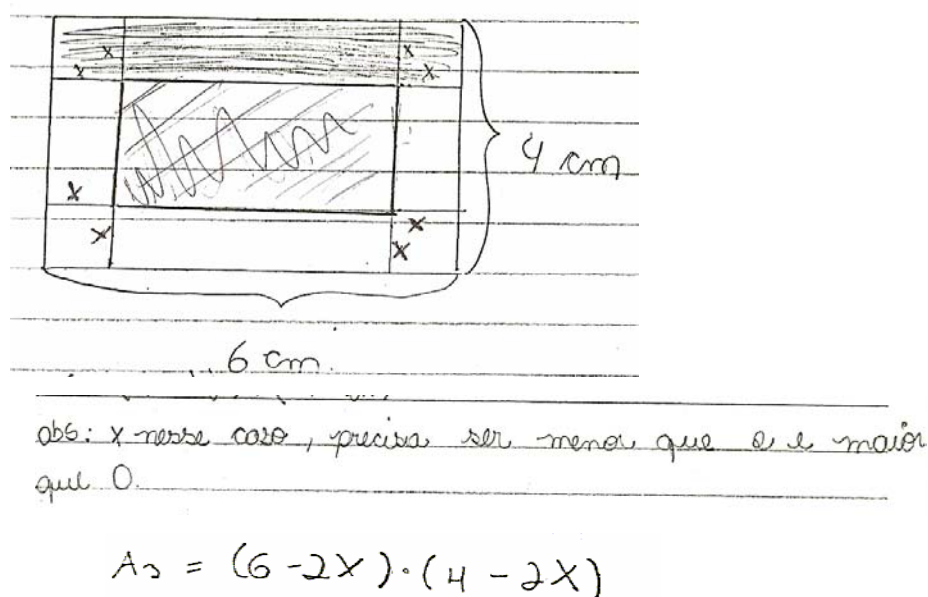 x x
x x
4 cm
x x
x x
6 cm
obs: x nesse caso, precisa ser menor que 2 e maior
que 0.
A₂ = (6 - 2X) · (4 - 2X)